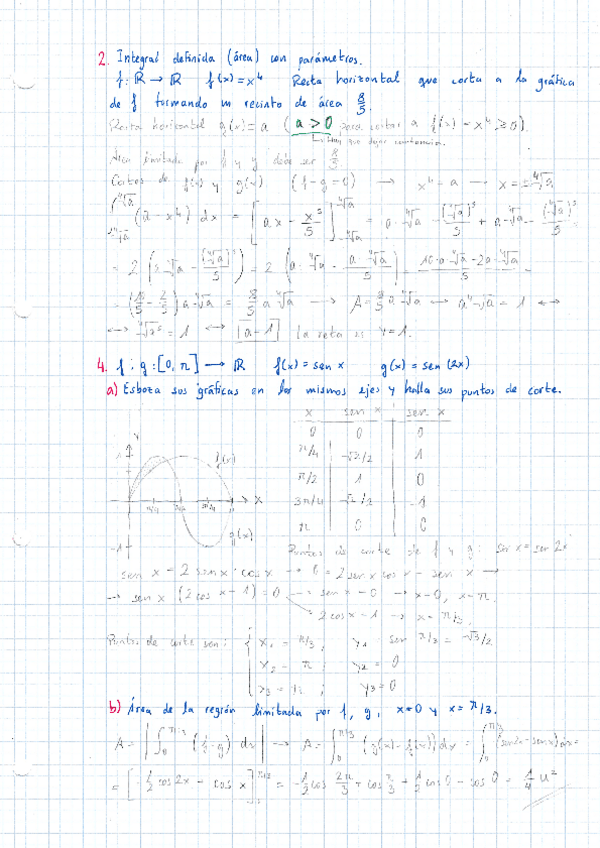 2. Integral definida (área) con parámetros.
f: ℝ → ℝ f(x) = x⁴ Recta horizontal que corta a la gráfica
de f formando un recinto de área 8/5.
Recta horizontal g(x) = a (a > 0 para cortar a f(x) = x⁴ ≥ 0).
Hay que dejar constancia.
Área limitada por f y g debe ser 8/5
Cortes de f(x) y g(x) (f - g = 0) → x⁴ = a → x = ±⁴√a
∫ (a - x⁴) dx = [ax - x⁵/5] = a·⁴√a - (⁴√a)⁵/5 + a·⁴√a - (⁴√a)⁵/5 =
= 2 (a·⁴√a - (⁴√a)⁵/5) = 2 (a·⁴√a - a·⁴√a/5) = 10·a·⁴√a - 2a·⁴√a / 5 =
= (10/5 - 2/5) a·⁴√a = 8/5 a·⁴√a → A = 8/5 a·⁴√a → a·⁴√a = 1 ↔
↔ ⁴√a⁵ = 1 ↔ a = 1 La recta es y = 1.
4. f; g: [0, π] → ℝ f(x) = sen x g(x) = sen (2x)
a) Esboza sus gráficas en los mismos ejes y halla sus puntos de corte.
x sen x sen x
0 0 0
π/4 √2/2 1
π/2 1 0
3π/4 √2/2 -1
π 0 0
y
1
f(x)
π/4 π/2 3π/4 π x
-1
g(x)
Puntos de corte de f y g: sen x = sen 2x
sen x = 2 sen x · cos x → 0 = 2 sen x cos x - sen x →
→ sen x (2 cos x - 1) = 0 → sen x = 0 → x = 0, x = π.
2 cos x - 1 → x = π/3.
Puntos de corte son: x₁ = π/3; y₁ sen π/3 = √3/2
x₂ = π; y₂ = 0
y₃ = 0
b) Área de la región limitada por f, g, x=0 y x = π/3.
A = |∫ (f - g) dx| → A = ∫ (g(x) - f(x)) dx = ∫ (sen 2x - sen x) dx =
= [-1/2 cos 2x + cos x] = -1/2 cos 2π/3 + cos π/3 + 1/2 cos 0 - cos 0 = 1/4 u²